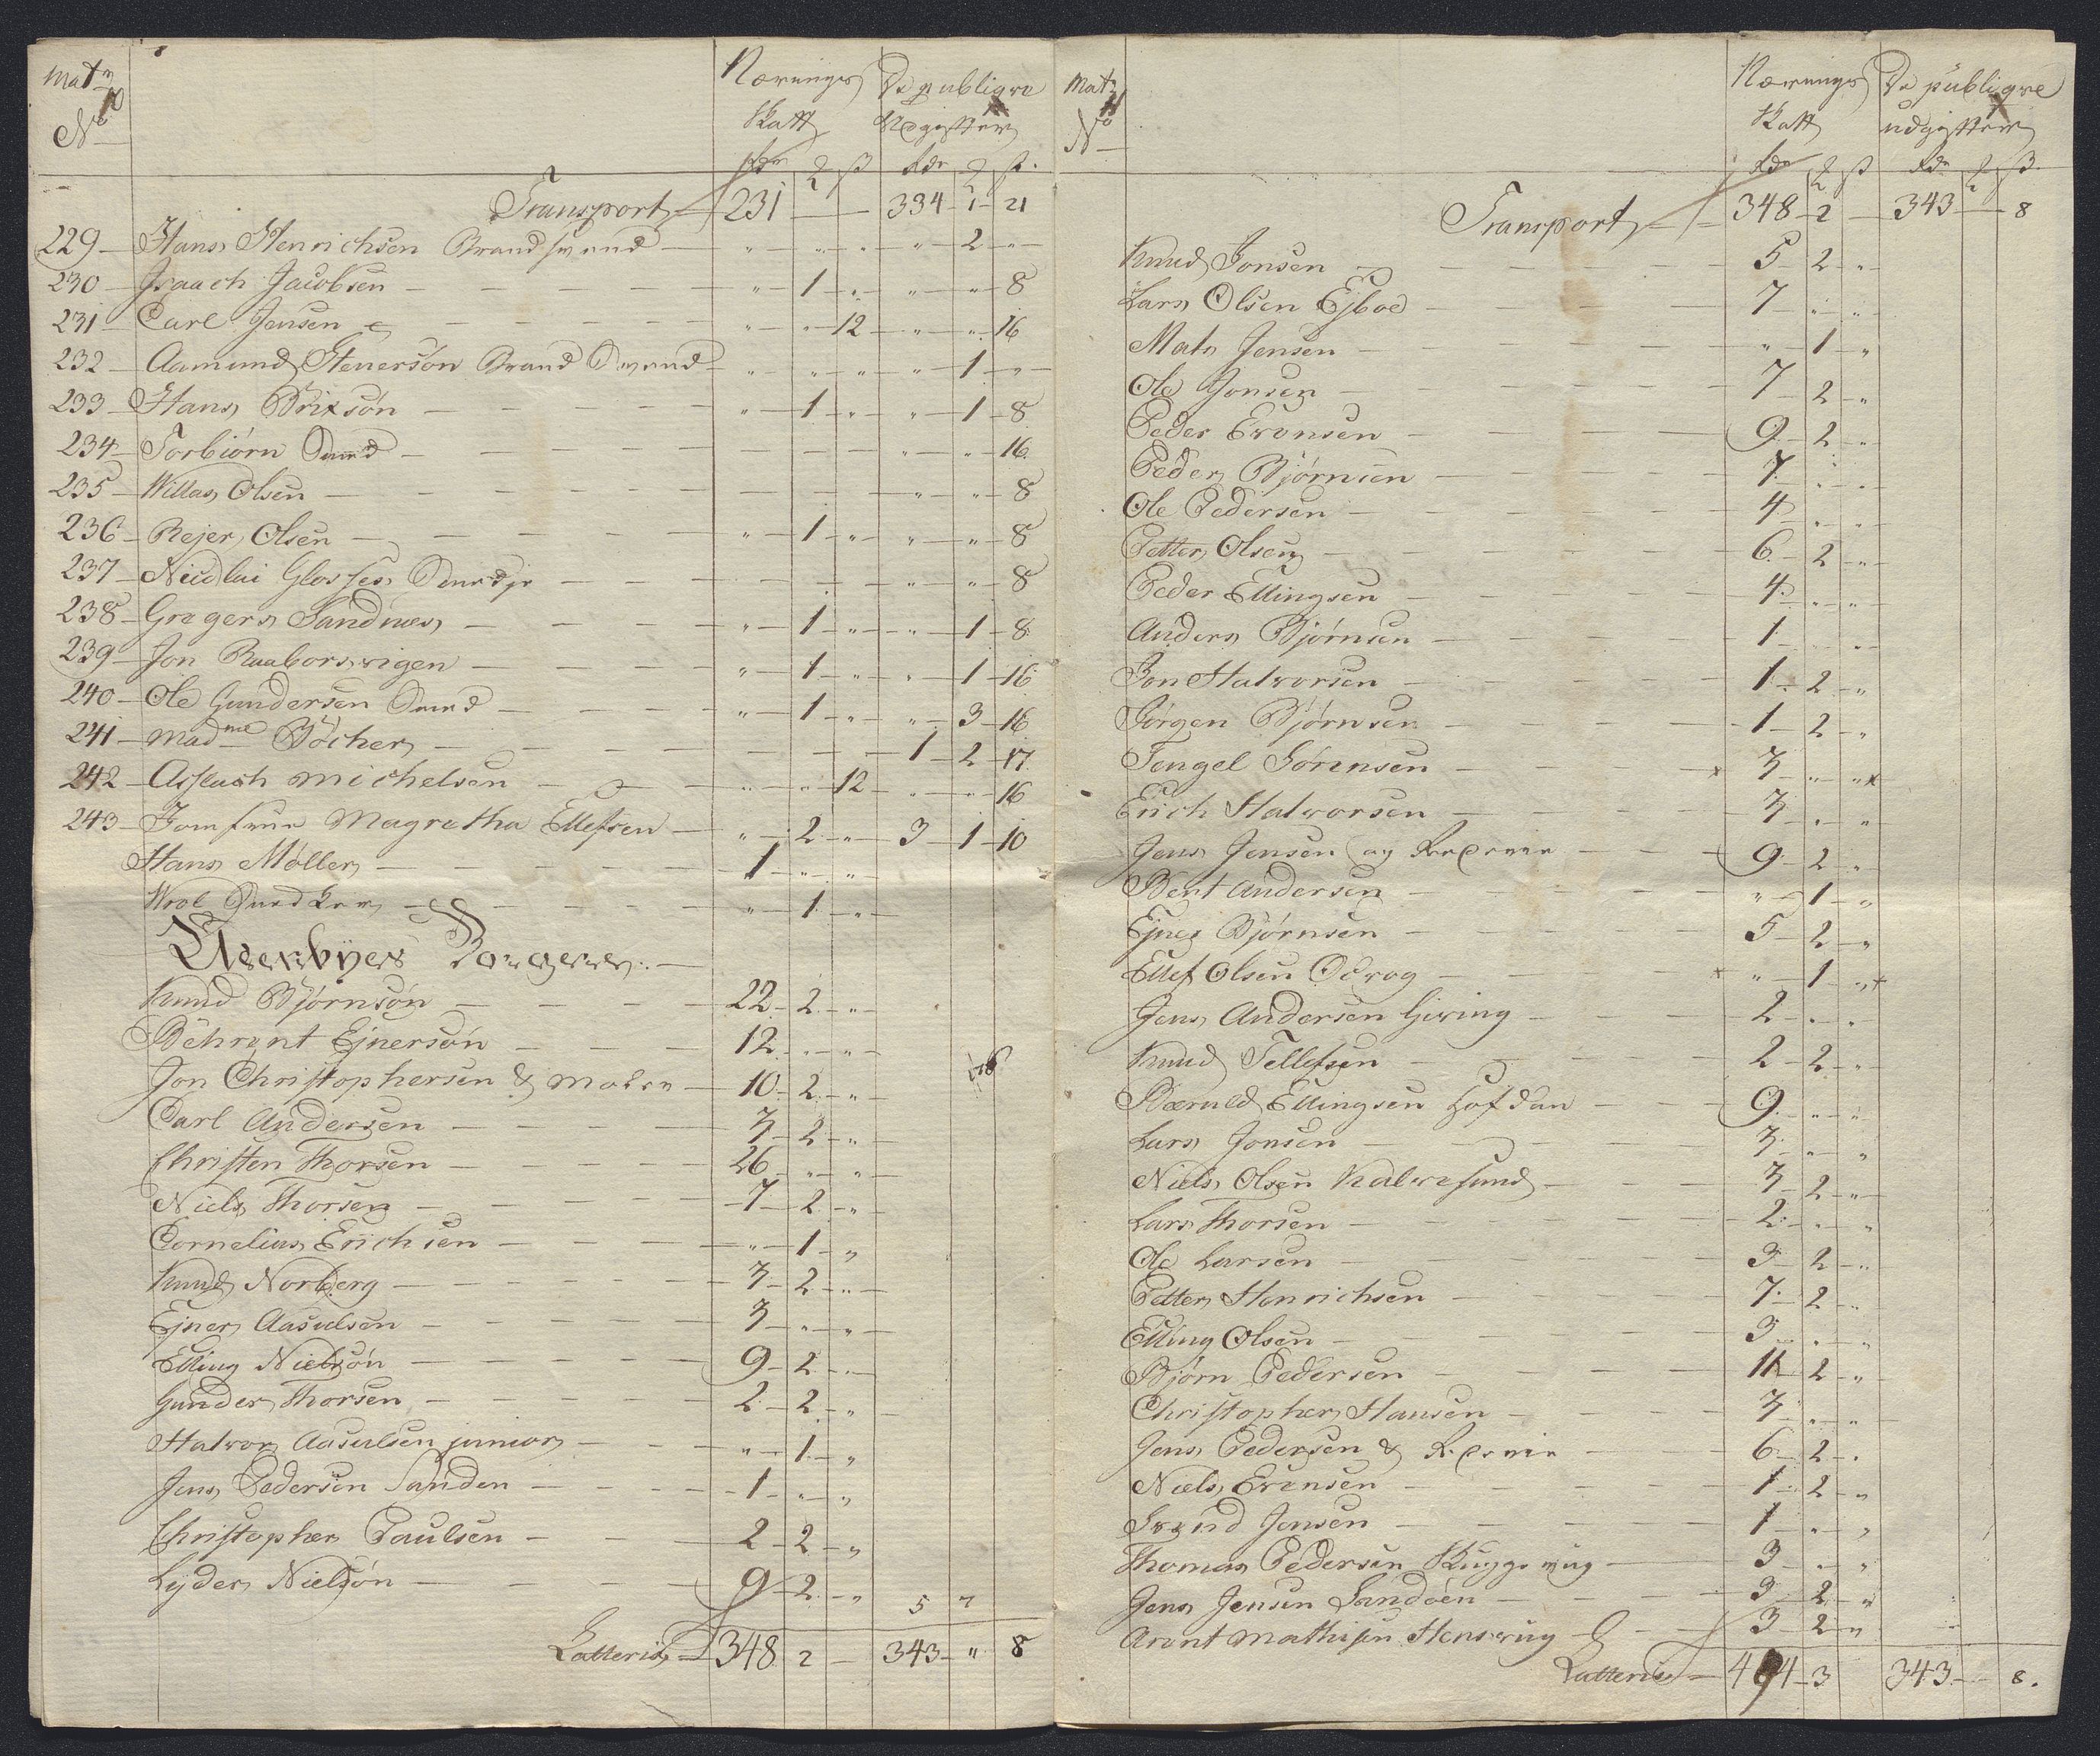 Matr No
Nærings Skatt
De publiqve Udgifter
Rdr ß Rdr ß
Transport 231 — — 334 1 21
229 Hans Henrichsen Brandsvend " " " " 2 "
230 Isaach Jacobsen " 1 " " " 8
231 Carl Jensen " " 12 " " 16
232 Aamund Stenersön Brand Svend " " " " 1 "
233 Hans Brixsön " 1 " " 1 8
234 Torbiörn Smed — — — " " 16
235 Willas Olsen — — — " " 8
236 Rejer Olsen " 1 " " " 8
237 Nicolai Glosses — — — " " 8
238 Gregers Sandnes " 1 " " 1 8
239 Jon Raaborsvigen " 1 " " 1 16
240 Ole Gundersen Smed " 1 " " 3 16
241 Madme Böcher — — — 1 2 17
242 Asslach Michelsen " " 12 " " 16
243 Jomfrue Magretha Ellefsen " 2 " 3 1 10
Hans Møller 1 " "
Wrol " 1 "
Uderbÿes Borgere
Knud Bjørnsøn 22 2 "
Behrent Ejnersön 12 " "
Jon Christophersen & 10 2 "
Carl Andersen 3 2 "
Christen Thorsen 26 " "
Niels Thorsen 7 2 "
Cornelius Erichsen " 1 "
Knud Norberg 3 2 "
Ejner Aasulsen 3 " "
Elling Nielsön 9 2 "
Gunder Thorsen 2 2 "
Halvor Aasulsen junior " 1 "
Jens Pedersen Sanden 1 " "
Christopher Paulsen 2 2 "
Lÿder Nielsön 9 2 "
5 7
Latteris 348 2 — 343 " 8
Matr No
Nærings Skatt
De publiqve udgifter
Rdr ß Rdr ß
Transport 348 2 — 343 — 8
Knud Jonsen 5 2 "
Lars Olsen Ejboe 7 " "
Mats Jensen " 1 "
Ole Jonsen 7 2 "
Peder Evensen 9 2 "
Peder Bjørnsen 7 " "
Ole Pedersen 4 " "
Petter Olsen 6 2 "
Peder Ellingsen 4 " "
Anders Bjørnsen 1 " "
Jon Halvorsen 1 2 "
Jörgen Bjørnsen 1 2 "
Tengel Sörensen 3 " "
Erich Halvorsen 3 " "
Jens Jensen og 9 2 "
Bent Andersen " 1 "
Ejner Bjørnsen 5 2 "
Ellef Olsen Odvog " 1 "
Jens Andersen Giving 2 " "
Knud Tellefsen 2 2 "
Bæruld Ellingsen Hofdan 9 " "
Lars Jonsen 3 " "
Niels Olsen Kalvesund 3 2 "
Lars Thorsen 2 " "
Ole Larsen 3 2 "
Petter Henrichsen 7 2 "
Elling Olsen 3 " "
Bjørn Pedersen 11 2 "
Christopher Hansen 3 " "
Jens Pedersen & 6 2 "
Niels Evensen 1 2 "
Svend Jensen 1 " "
Thomas Pedersen Skuggevig 3 " "
Jens Jensen Sandöen 3 2 "
Arent Mathisen Hensvig 3 2 "
Latteris 3 343 — 8.